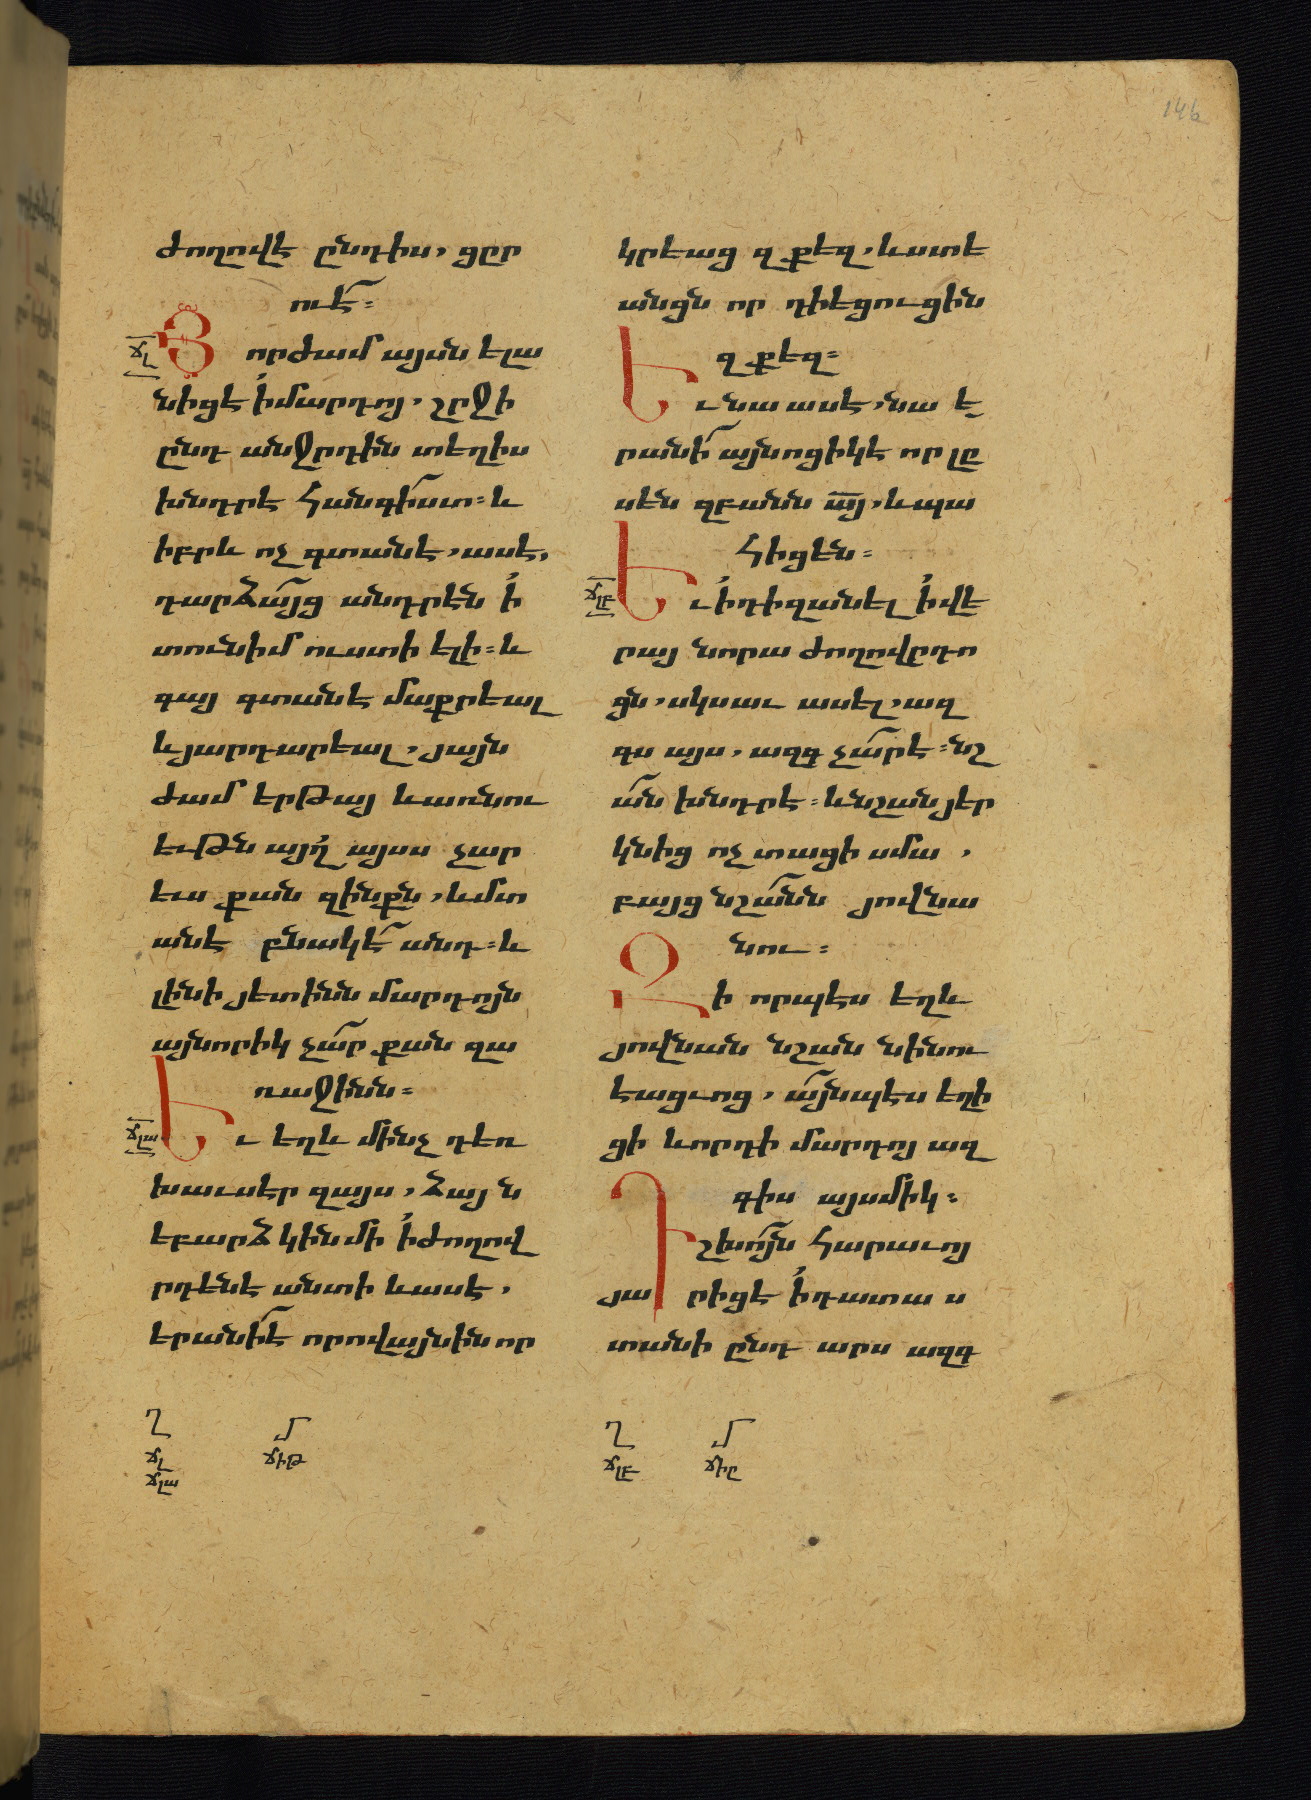 146
ժողովէ ընդիս, ցըր
ուէ։
Յորժամ այսն ելա
նիցէ ի մարդոյ, շրջի
ընդ անջրդին տեղիս
խնդրէ հանգիստ։ և
իբրև ոչ գտանէ, ասէ,
դարձայց անդրէն ի
տունիմ ուստի ելի։ և
գայ գտանէ մաքրեալ
և յարդարեալ, յայն
ժամ երթայ և առնու
եւթն այղ այսս չար
եւս քան զինքն, և մտ
անէ բնակէ անդ։ և
լինի յետինն մարդոյն
այնորիկ չար քան զա
ռաջինն։
Եւ եղև մինչ դեռ
խաւսէր զայս, ձայն
եբարձ կին մի ի ժողով
րդենէ անտի և ասէ,
երանիէ որովայնին որ
ճլ
ճլա
կրեաց զքեզ, և ստե
անցն որ դիեցուցին
զքեզ։
Եւ նա ասէ, նա է
րանի այնոցիկէ որ լը
սեն զբանն այ, և պա
հիցեն։
Եւ ի դիզանել ի վե
րայ նորա ժողովըդո
ցն, սկսաւ ասել, ազ
գս այս, ազգ չարէ։ նշ
ան խնդրէ։ և նշան յեր
կնից ոչ տացի սմա,
բայց նշանն յովնա
նու։
Զի որպէս եղև
յովնան նշան նինու
էացւոց, այնպէս եղի
ցի և որդի մարդոյ ազ
գիս այսմիկ։
Դշխոյն հարաւոյ
յարիցէ ի դատաս
տանի ընդ արս ազգ
ճլբ
Ղ
ճլ
ճլա
Մ
ճիթ
Ղ
ճլբ
Մ
ճիը